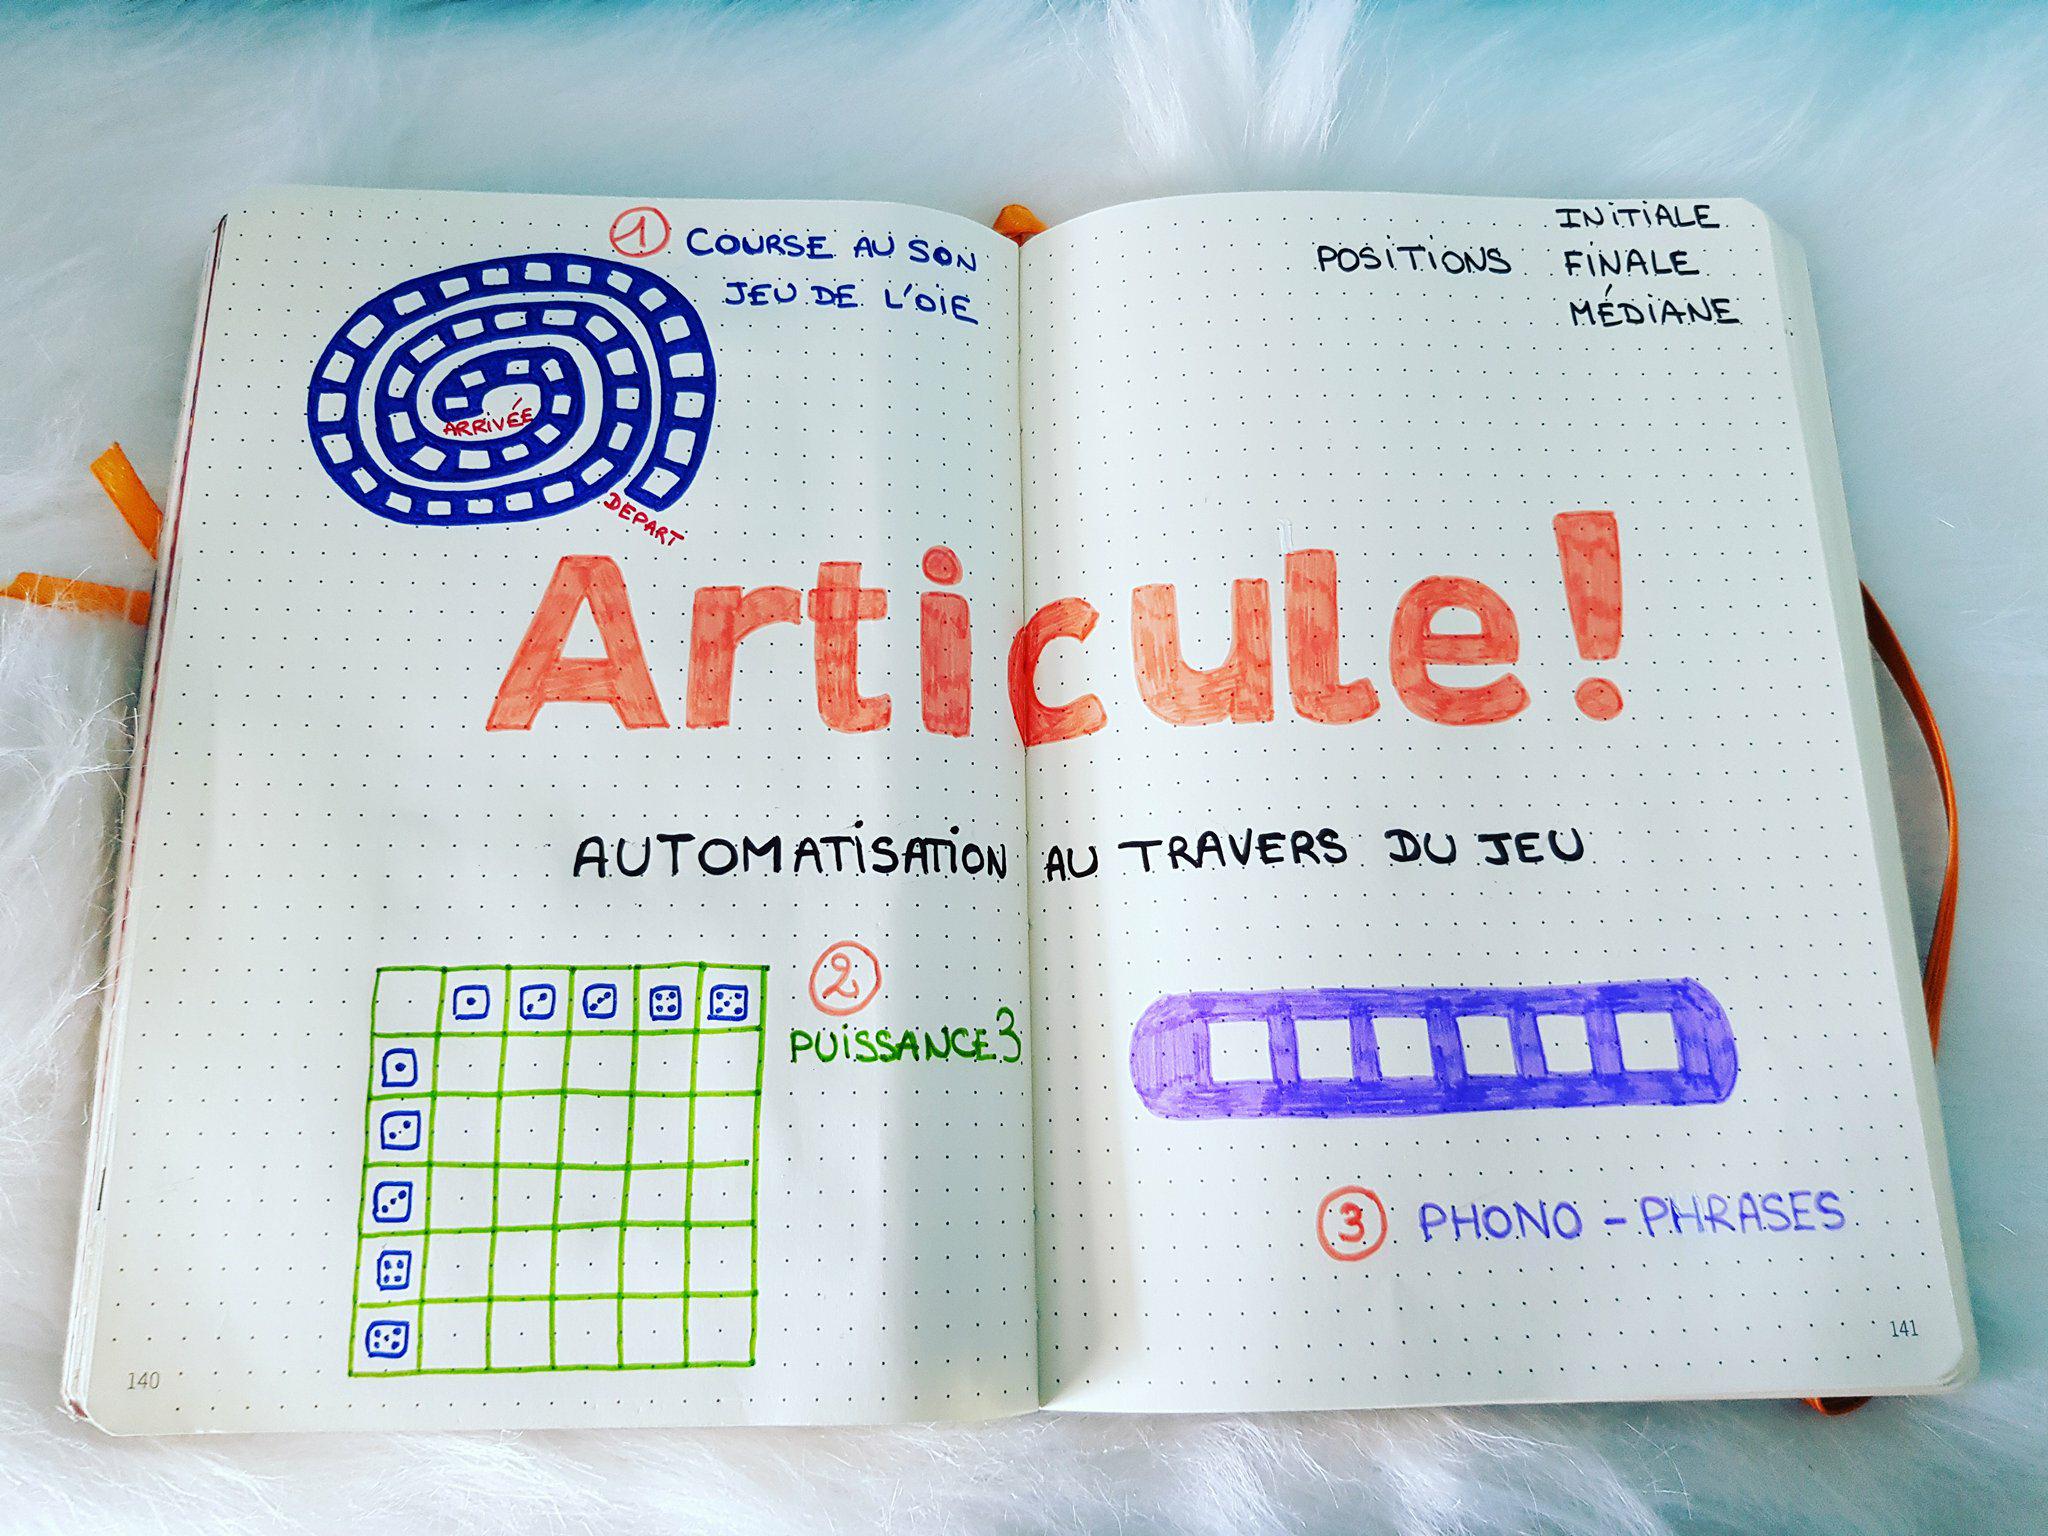 1 COURSE AU SON
JEU DE L'OIE
ARRIVÉE
DEPART
INITIALE
POSITIONS FINALE
MÉDIANE
Articule!
AUTOMATISATION AU TRAVERS DU JEU
2
PUISSANCE 3
3 PHONO - PHRASES
140
141